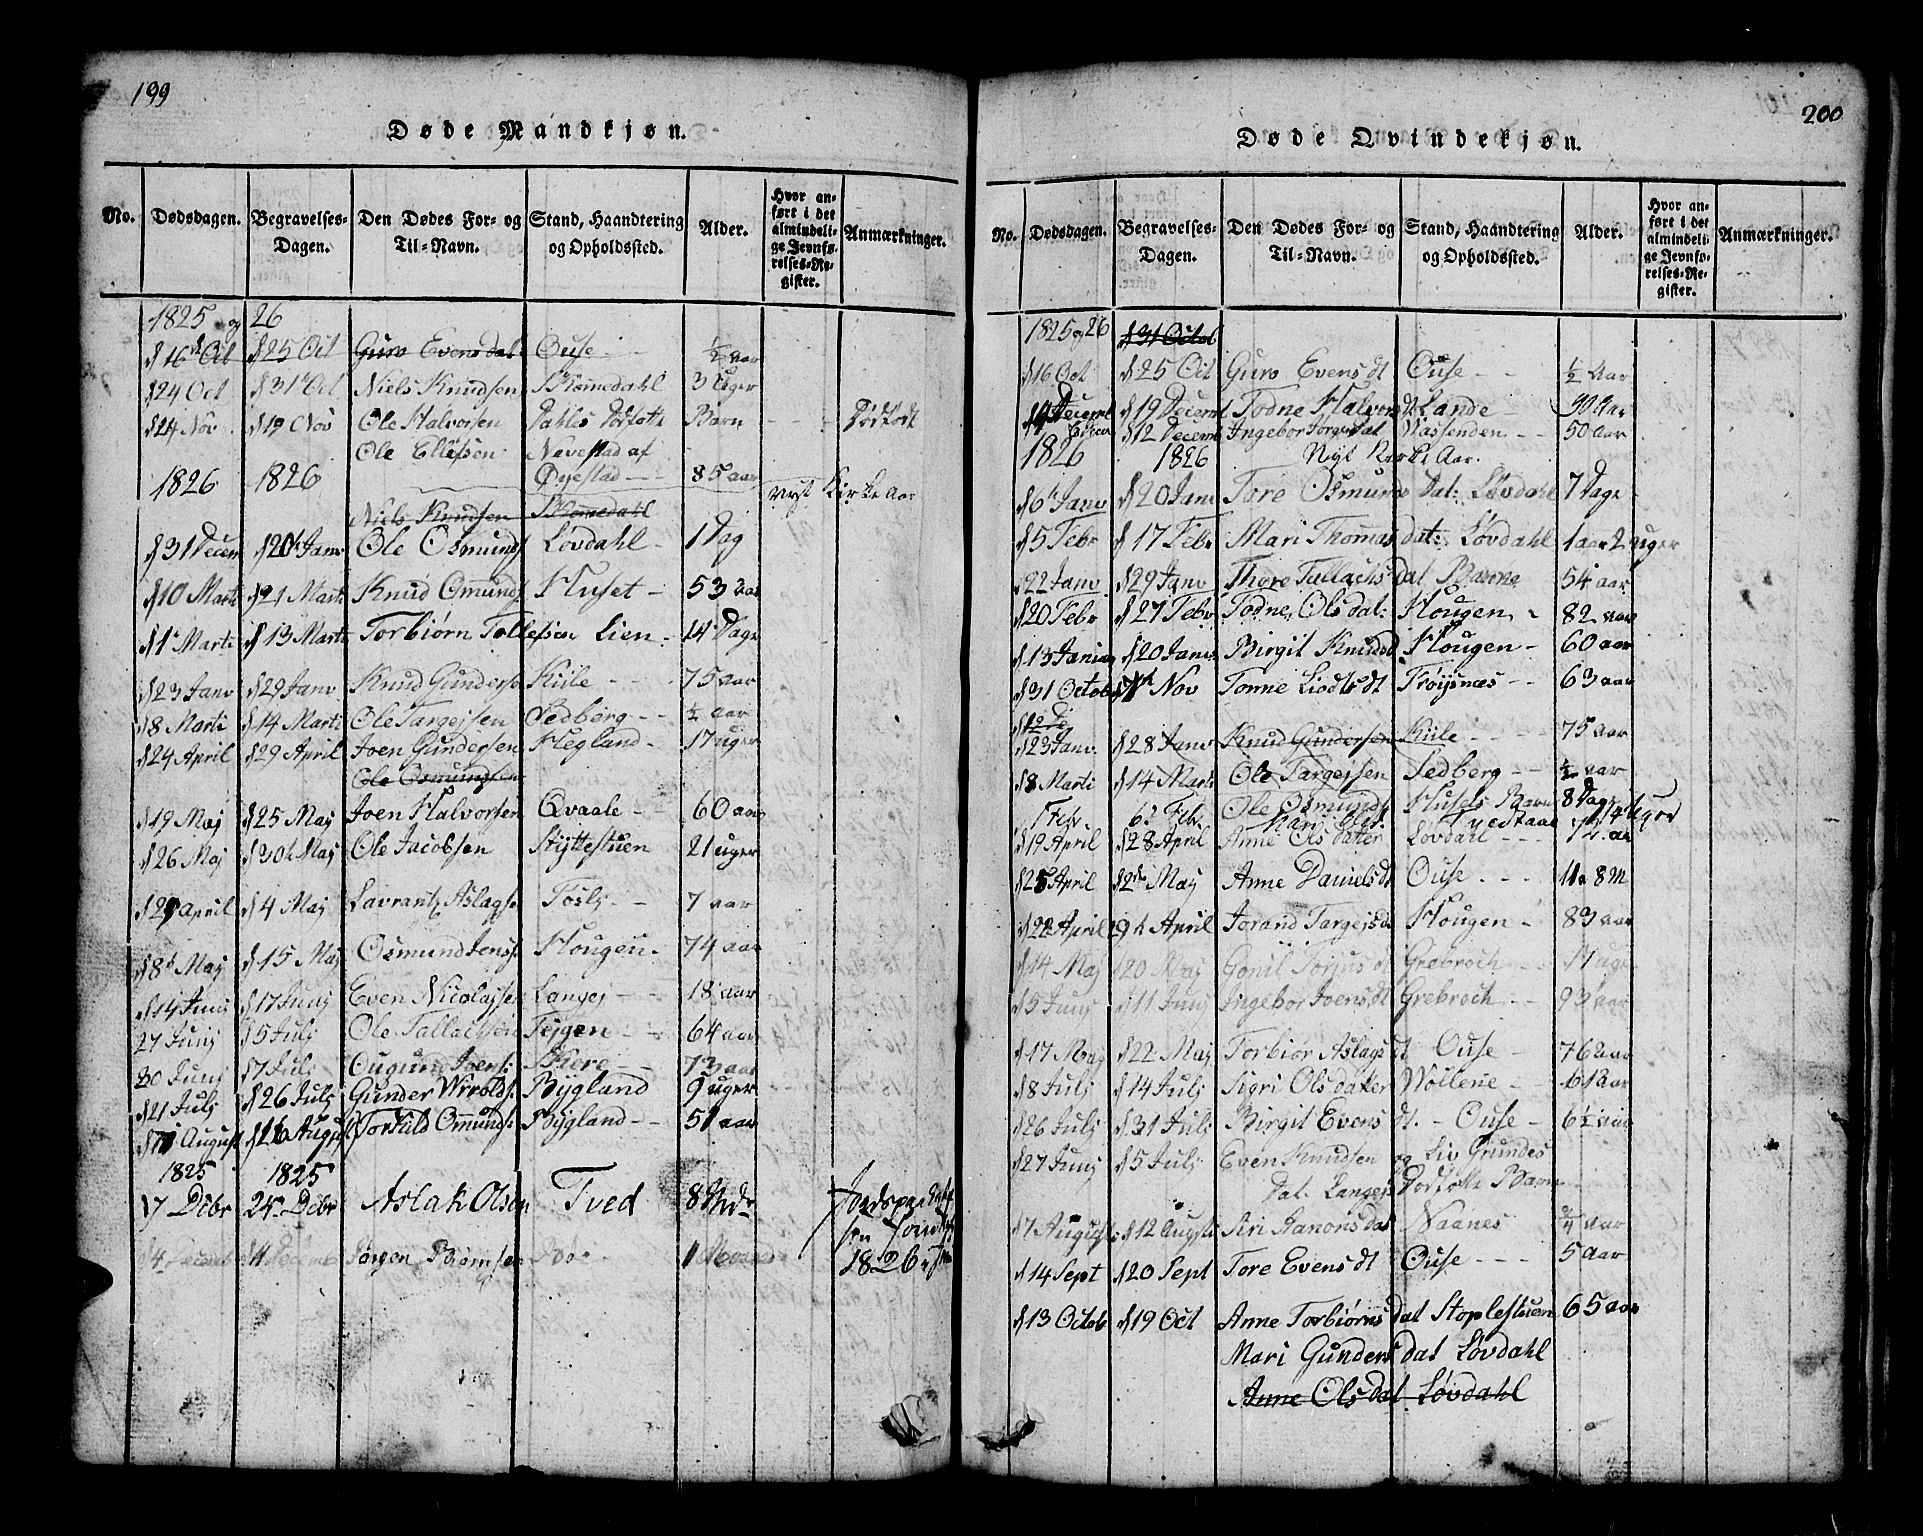 199
Døde Mandkjøn.
No. Dødsdagen. Begravelses-Dagen. Den Dødes For- og Til-Navn. Stand, Haandtering og Opholdssted. Alder. Hvor anført i det almindelige Jevnførelses-Register. Anmærkninger.
1825 og 26
d 16 Oct d 25 Oct Guro Evensdat: Ouse - ½ aar
d 24 Oct d 31 Oct Niels Knudsen Skomedahl 3 Uger
d 14 Nov d 19 Nov Ole Halvorsen Dahles Barn - - - Dødfødt
Ole Ellefsen Navestad af
1826 1826 Øyestad - - 85 aar
Niels Knudsen Skomedahl
d 31 Decem d 20 Janv Ole Osmunds Løvdahl - 1 Dag
d 10 Marti d 21 Marti Knud Omunds Huset - 53 aar
d 1 Marti d 13 Marti Torbiørn Tollefsen Lien - 14 Dage
d 23 Janv d 29 Janv Knud Gunderse Kiile - - 75 aar
d 8 Marti d 14 Marti Ole Targejsen Sedberg - - ½ aar
d 24 April d 29 April Joen Gundersen Hegland - 17 uger
Ole Osmundsen
d 19 Maj d 25 Maj Joen Halvorsen Qvaale - 60 aar
d 26 Maj d 30 Maj Ole Jacobsen Støttestuen 21 uger
d 29 april d 4 Maj Lavrantz Aslags. 7 aar
d 8 Maj d 15 Maj Osmund Jens. Hougen - 74 aar
d 14 Junj d 17 Junj Even Nicolajsen Langej - - 18 aar
27 Junj d 5 Julj Ole Tallachsen Tejgen - - 64 aar
30 Junj d 7 Julj Ougund Joens: Skore - - 73 aar
d 21 Julj d 26 Julj Gunder Wrolds: Bygland 9 uger
August d 16 August Torkild Omunds: Bygland - - 51 aar
1825 1825
17 Debr 24 Debr Aslak Olsen Tved 8 Jordspaa
1826
4 Decemb 11 Decemb Jørgen Biørnsen Bøe - 1
200
Døde Qvindekjøn.
No. Dødsdagen. Begravelses-Dagen. Den Dødes For- og Til-Navn. Stand, Haandtering og Opholdssted. Alder. Hvor anført i det almindelige Jevnførelses-Register. Anmærkninger.
1825 og 26 d 31 Octob
d 16 Oct d 25 Oct Guro Evensdt Ouse - - ½ Aar
d 14 Decembr d 19 Decemb Todne Halvorsdt Lande 90 Aar
d 12 Decemb Ingebor Jørgensdat Vassenden - - 50 aar
1826 1826 Nyt Kirke Aar.
d 6 Janv d 20 Janv Tore Osmunds Dat: Løvdahl 7 Dage
d 5 Febr d 17 Febr Mari Thomasdat: Løvdahl 1 aar 2 uger
d 22 Janv d 29 Janv Thore Tallachsdat 54 aar
d 20 Febr d 27 Febr Todne Olsdat: Hougen - 82 aar
d 13 Janv d 20 Janv Birgit Knudsd. Hougen - 60 aar
d 31 Octob Nov Tonne Liodtsdt Frøysnæs - - 63 aar
d 23 Janv. d 28 Janv Knud Gundersen Kiile - - - 75 aar
d 8 Marti d 14 Marti Ole Targejsen Sedberg - - ½ aar
1 Febr 6 Febr. Ole Osmunds Husets Barn 8 Dage
d 19 April d 28 April Anne Olsdatter Løvdahl - - -
d 25 April d 2 Maj Anne Danielsdt Ouse - - - 11 a 8 M
d 22 April 29 April Jorand Targejsd Hougen - 83 aar
d 14 Maj d 20 Maj Gonil Torjusdt Grebroch - - 17 uger
d 5 Junj d 11 Junj Ingebor Joensdt Grebroch - - 93 aar
d 17 Maj d 22 Maj Torbiør Aslagsdt Ouse - 76 aar
d 8 Julj d 14 Julj Sigri Olsdater Wollene - 61 aar
d 26 Julj d 31 Julj Birgit Evensdt. - Ouse - 6½ aar
d 27 Junj d 5 Julj Even Knudsen og Liv Grundes
Dat. Langej Dødfødte Barn
d 7 August d 12 Augsti Siri Aanonsdat Naanes ¾ aar
d 14 Sept d 20 Sept Tore Evensdt Ouse - - - 5 aar
d 13 Octob d 19 Oct Anne Torbiørnsdat Stoplestuen 65 aar
Mari Gundersdat Løvdahl
Anne Olsdat Løvdahl